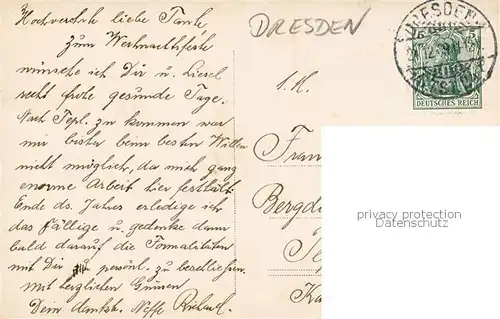 Hochverehrte liebe Tante,
zum Weihnachtsfeste
wünsche ich Dir u. Liesel
recht frohe gesunde Tage.
Nach Tepl. zu kommen war
mir bisher beim besten Willen
nicht möglich, da mich ganz
enorme Arbeit hier festhält.
Ende ds. Jahres erledige ich
das Fällige u. gedenke dann
bald darauf die Formalitäten
mit Dir persönl. zu beschließen.
Mit herzlichen Grüssen
Dein dankb. Neffe Richard.
DRESDEN
DRESDEN
DEUTSCHES REICH
I. H.
Frau
Bergdi
Te
privacy protection
www.ansichtskarten-center.de